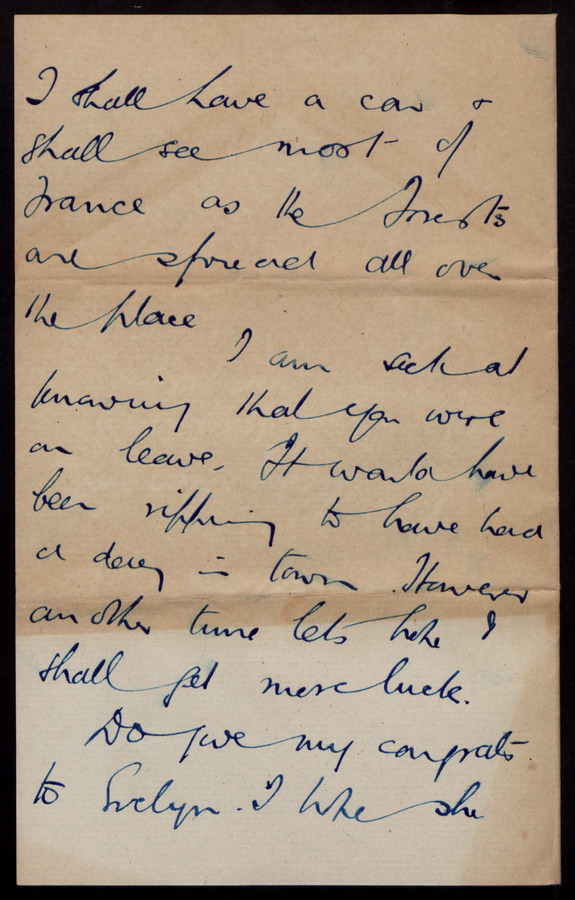 I shall have a car &
shall see most of
France as the Forests
are spread all over
the place
I am sick at
knowing that you were
on leave. It would have
been ripping to have had
a day in town. However
another time lets hope I
shall get more luck.
Do give my congrats
to Evelyn. I hope she